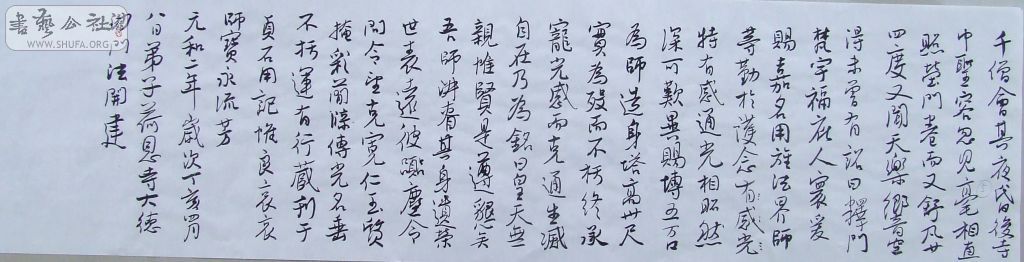 千僧會其夜昏後寺
中聖容忽見毫相直
照塋門卷而又舒凡廿
四度又聞天樂響空
得未曾有詔曰擇門
梵宇福庇人寰爰
賜嘉名用旌法界師
等勤於護念有感光
特有感通光相昭然
深可歎異賜塼五百
為師造身塔高卅尺
實為歿而不朽終承
寵光感而克通生滅
自在乃為銘曰皇天無
親惟賢是遵懿矣
吾師有其身遺榮
世表邈彼囂塵令
問令望克寬仁玉質
掩彩蘭牒傳光名垂
不朽運有行藏刊于
貞石用記惟良哀哀
師寶永流芳
元和二年歲次丁亥月
八日弟子荷恩寺大德
門法開建
書藝公社
WWW.SHUFA.ORG